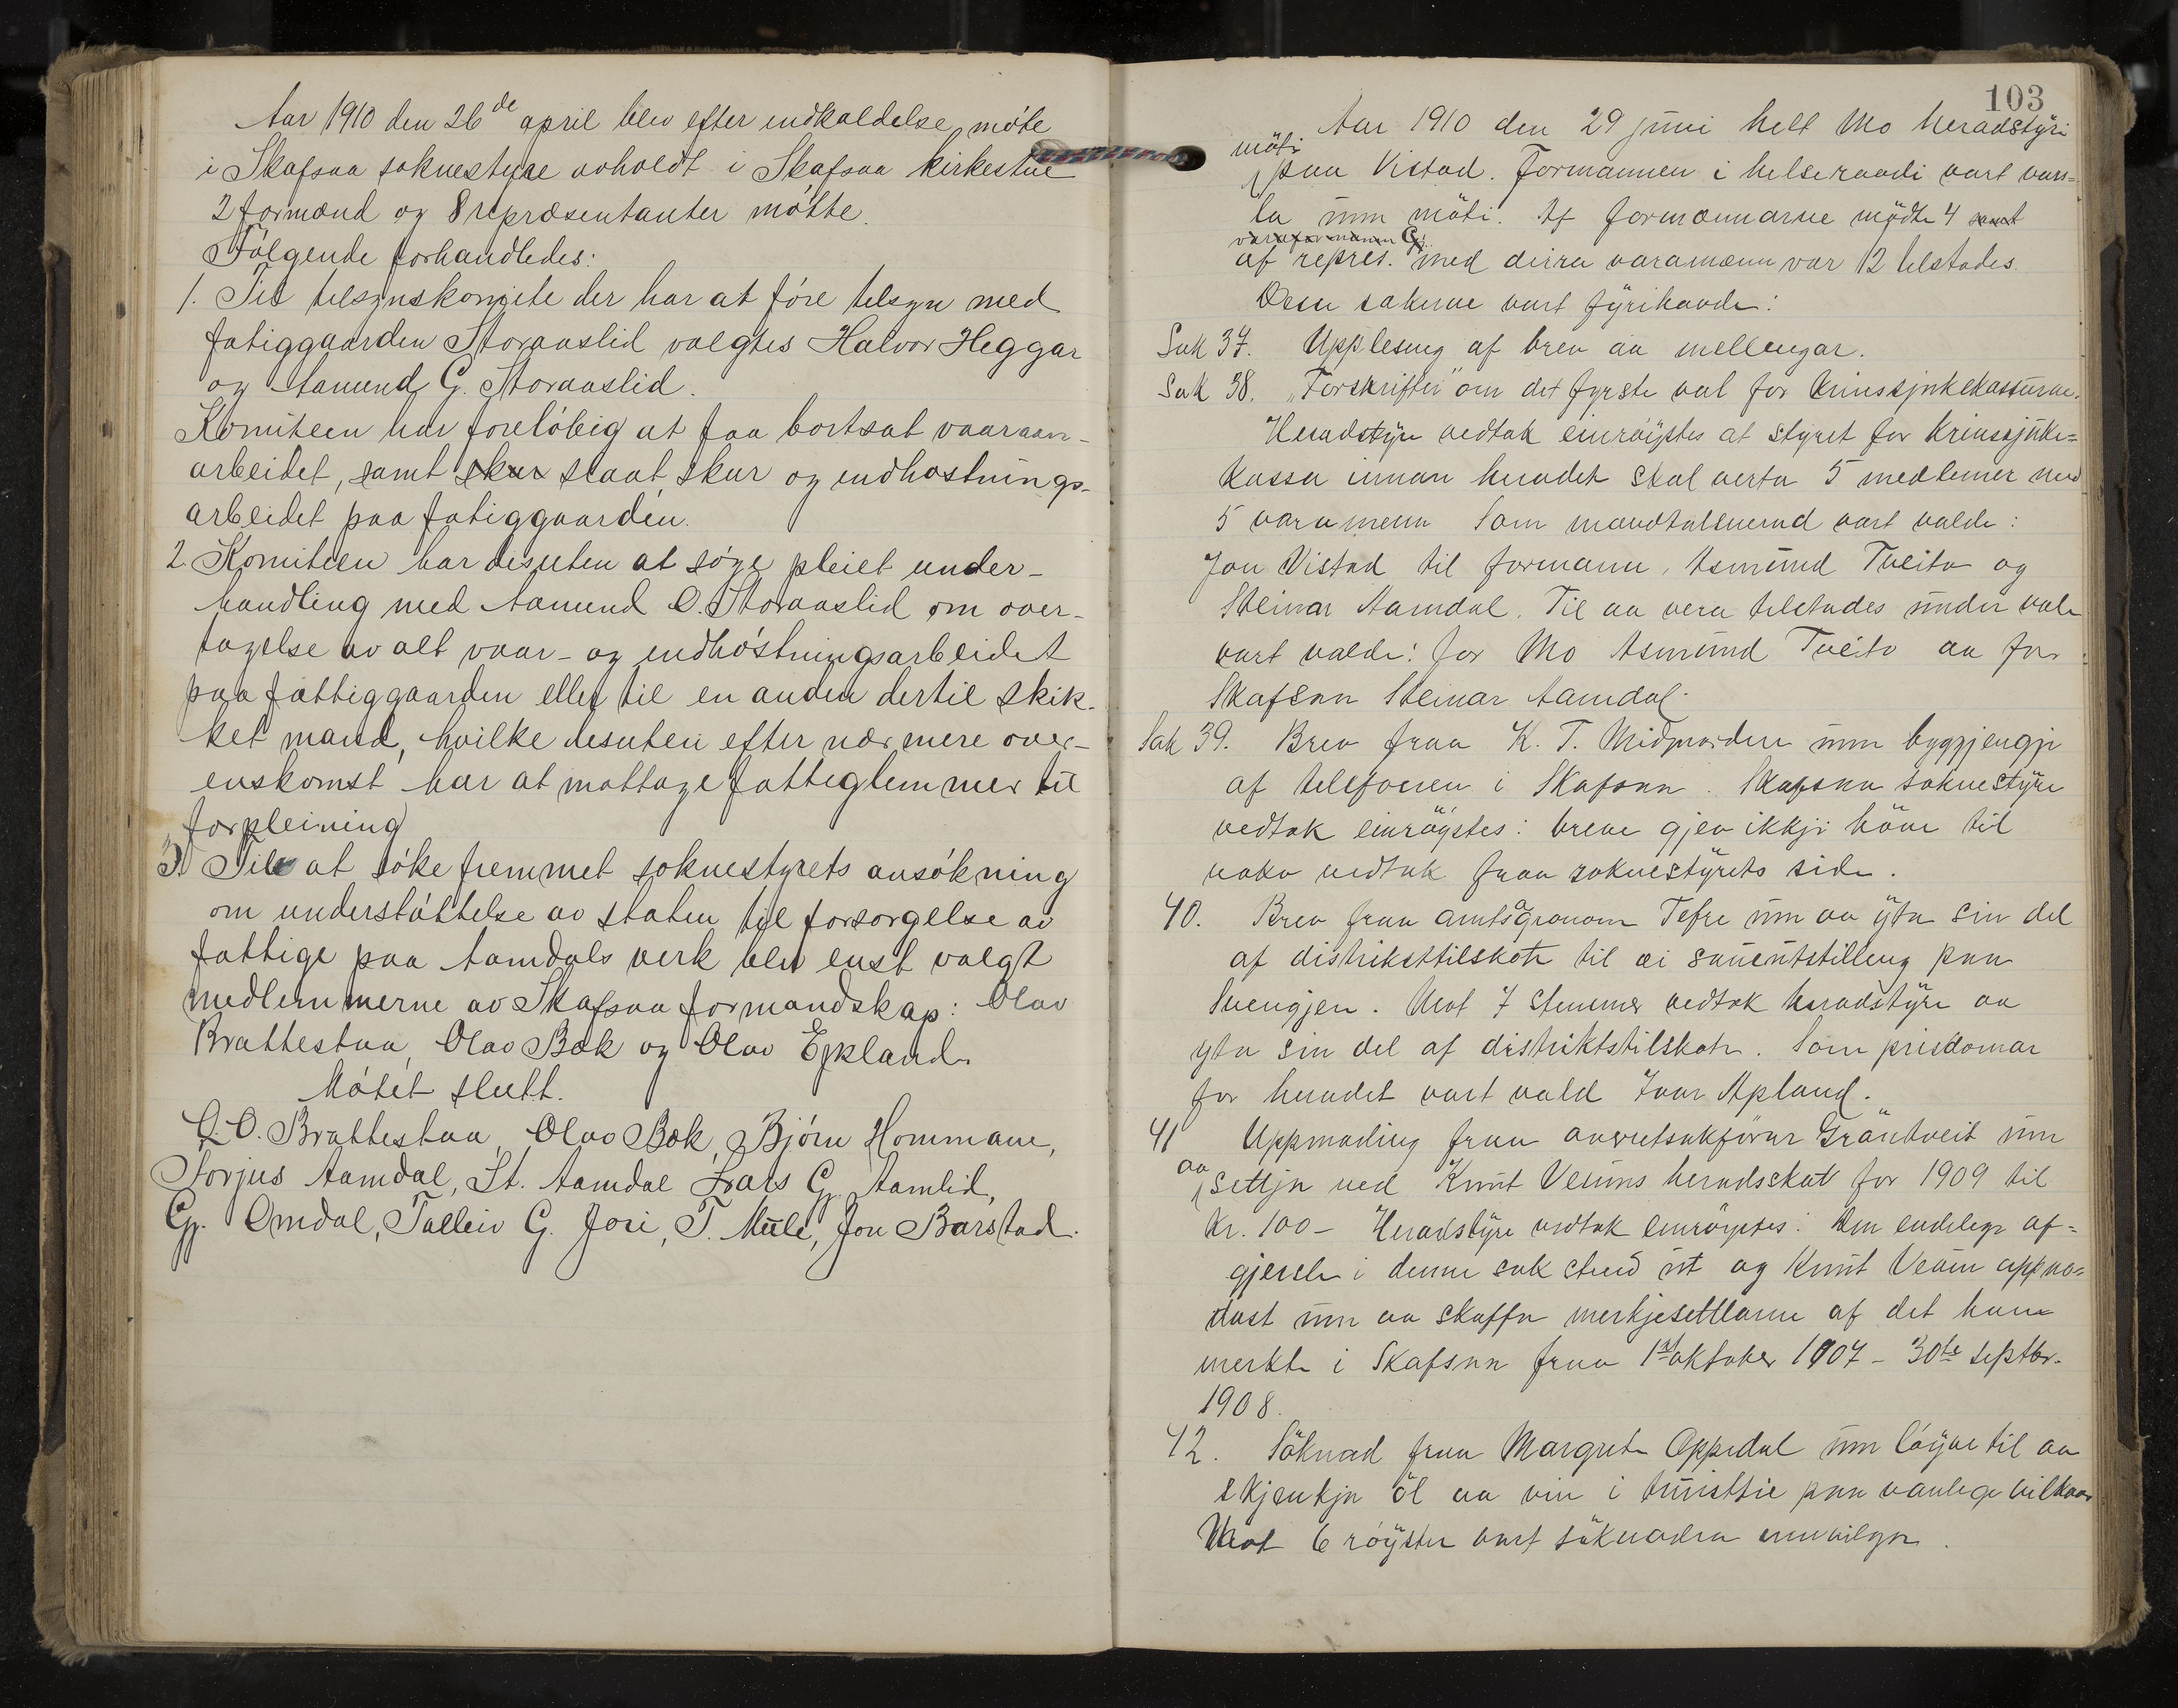 Aar 1910 den 26de april blev efter indkaldelse møte
i Skafsaa soknestyre avholdt i Skafsaa kirkestue
2 formænd og 8 repræsentanter møtte.
Følgende forhandledes:
1. Til tilsynskomite der har at føre tilsyn med
fatiggaarden Storaaslid valgtes Halvor Heggar
og Aamund G. Storaaslid.
Komiteen har foreløbig at faa bortsat vaaraan-
arbeidet, samt skur slaat, skur og indhøstnings-
arbeidet paa fatiggaarden.
2. Komiteen har desuten at søge pleiet under-
handling med Aamund O. Storaaslid om over-
tagelse av alt vaar- og indhøstningsarbeidet
paa fattiggaarden eller til en anden dertil skik-
ket mand, hvilke desuten efter nærmere over-
enskomst har at mottage fattiglemmer til
forpleining
3. Til at søke fremmet soknestyrets ansøkning
om understøttelse av staten til forsorgelse av
fattige paa Aamdals verk blev enst. valgt
medlemmerne av Skafsaa formandskap: Olav
Brattestaa, Olav Bæk og Olav Epland.
Møtet slutt.
O. O. Brattestaa, Olav Bæk, Bjørn Hommane,
Torjus Aamdal, St. Aamdal Lars G. Aamlid,
Gj. Omdal, Talleiv G. Jori, T. Mule, Jon Barstad.
103
Aar 1910 den 29 juni helt Mo heradstyri
møti
paa Vistad. Formannen i helseraadi vart vars=
la um møti. Af formænnarne mødte 4 samt
varaformann Gj.
af repres. med deira varamænn var 12 tilstades.
Desse sakerne vart fyrihavde:
Sak 37. Upplesing af brev aa mellengar.
Sak 38. "Forskrifter" om det fyrste val for krinssjukekassurne.
Heradstyre vedtok einrøystes at styret for krinssjuke=
kassa innan heradet skal verta 5 medlemer med
5 varamenn Som mandtalsnemd vart valde:
Jon Vistad til formann, Asmund Tveito og
Steinar Aamdal. Til aa vera tilstades under vale
vart valde: for Mo Asmund Tveito aa for
Skafsaa Steinar Aamdal.
Sak 39. Brev fraa K. T. Midgarden um byggjengje
af telefonen i Skafsaa. Skafsaa soknestyre
vedtok einrøystes: breve gjev ikkji høve til
noko vedtak fraa soknestyrets side.
40. Brev fraa amtsagronom Tefre um aa yta sin del
af distriksttilskote til ei saueutstilling paa
Svengjen. Mot 7 stemmer vedtok heradstyre aa
yta sin del af distriktstilskote. Som prisdomar
for heradet vart vald Ivar Apland.
41 Uppmoding fraa overretsakførar Grautveit um
aa
setja ned Knut Veums heradsskat for 1909 til
Kr. 100- Heradstyre vedtok einrøystes: Den endelege af=
gjersle i denne sak stend ut og Knut Veum oppmo=
dast um aa skaffa merkjesetlarne af det han
merkte i Skafsaa fraa 1st oktober 1907 - 30te septbr.
1908.
42. Søknad fraa Margrete Oppedal um løyve til aa
skjenkja øl aa vin i turisttie paa vanlege vilkaar
Mot 6 røyster vart søknaden innvilga.